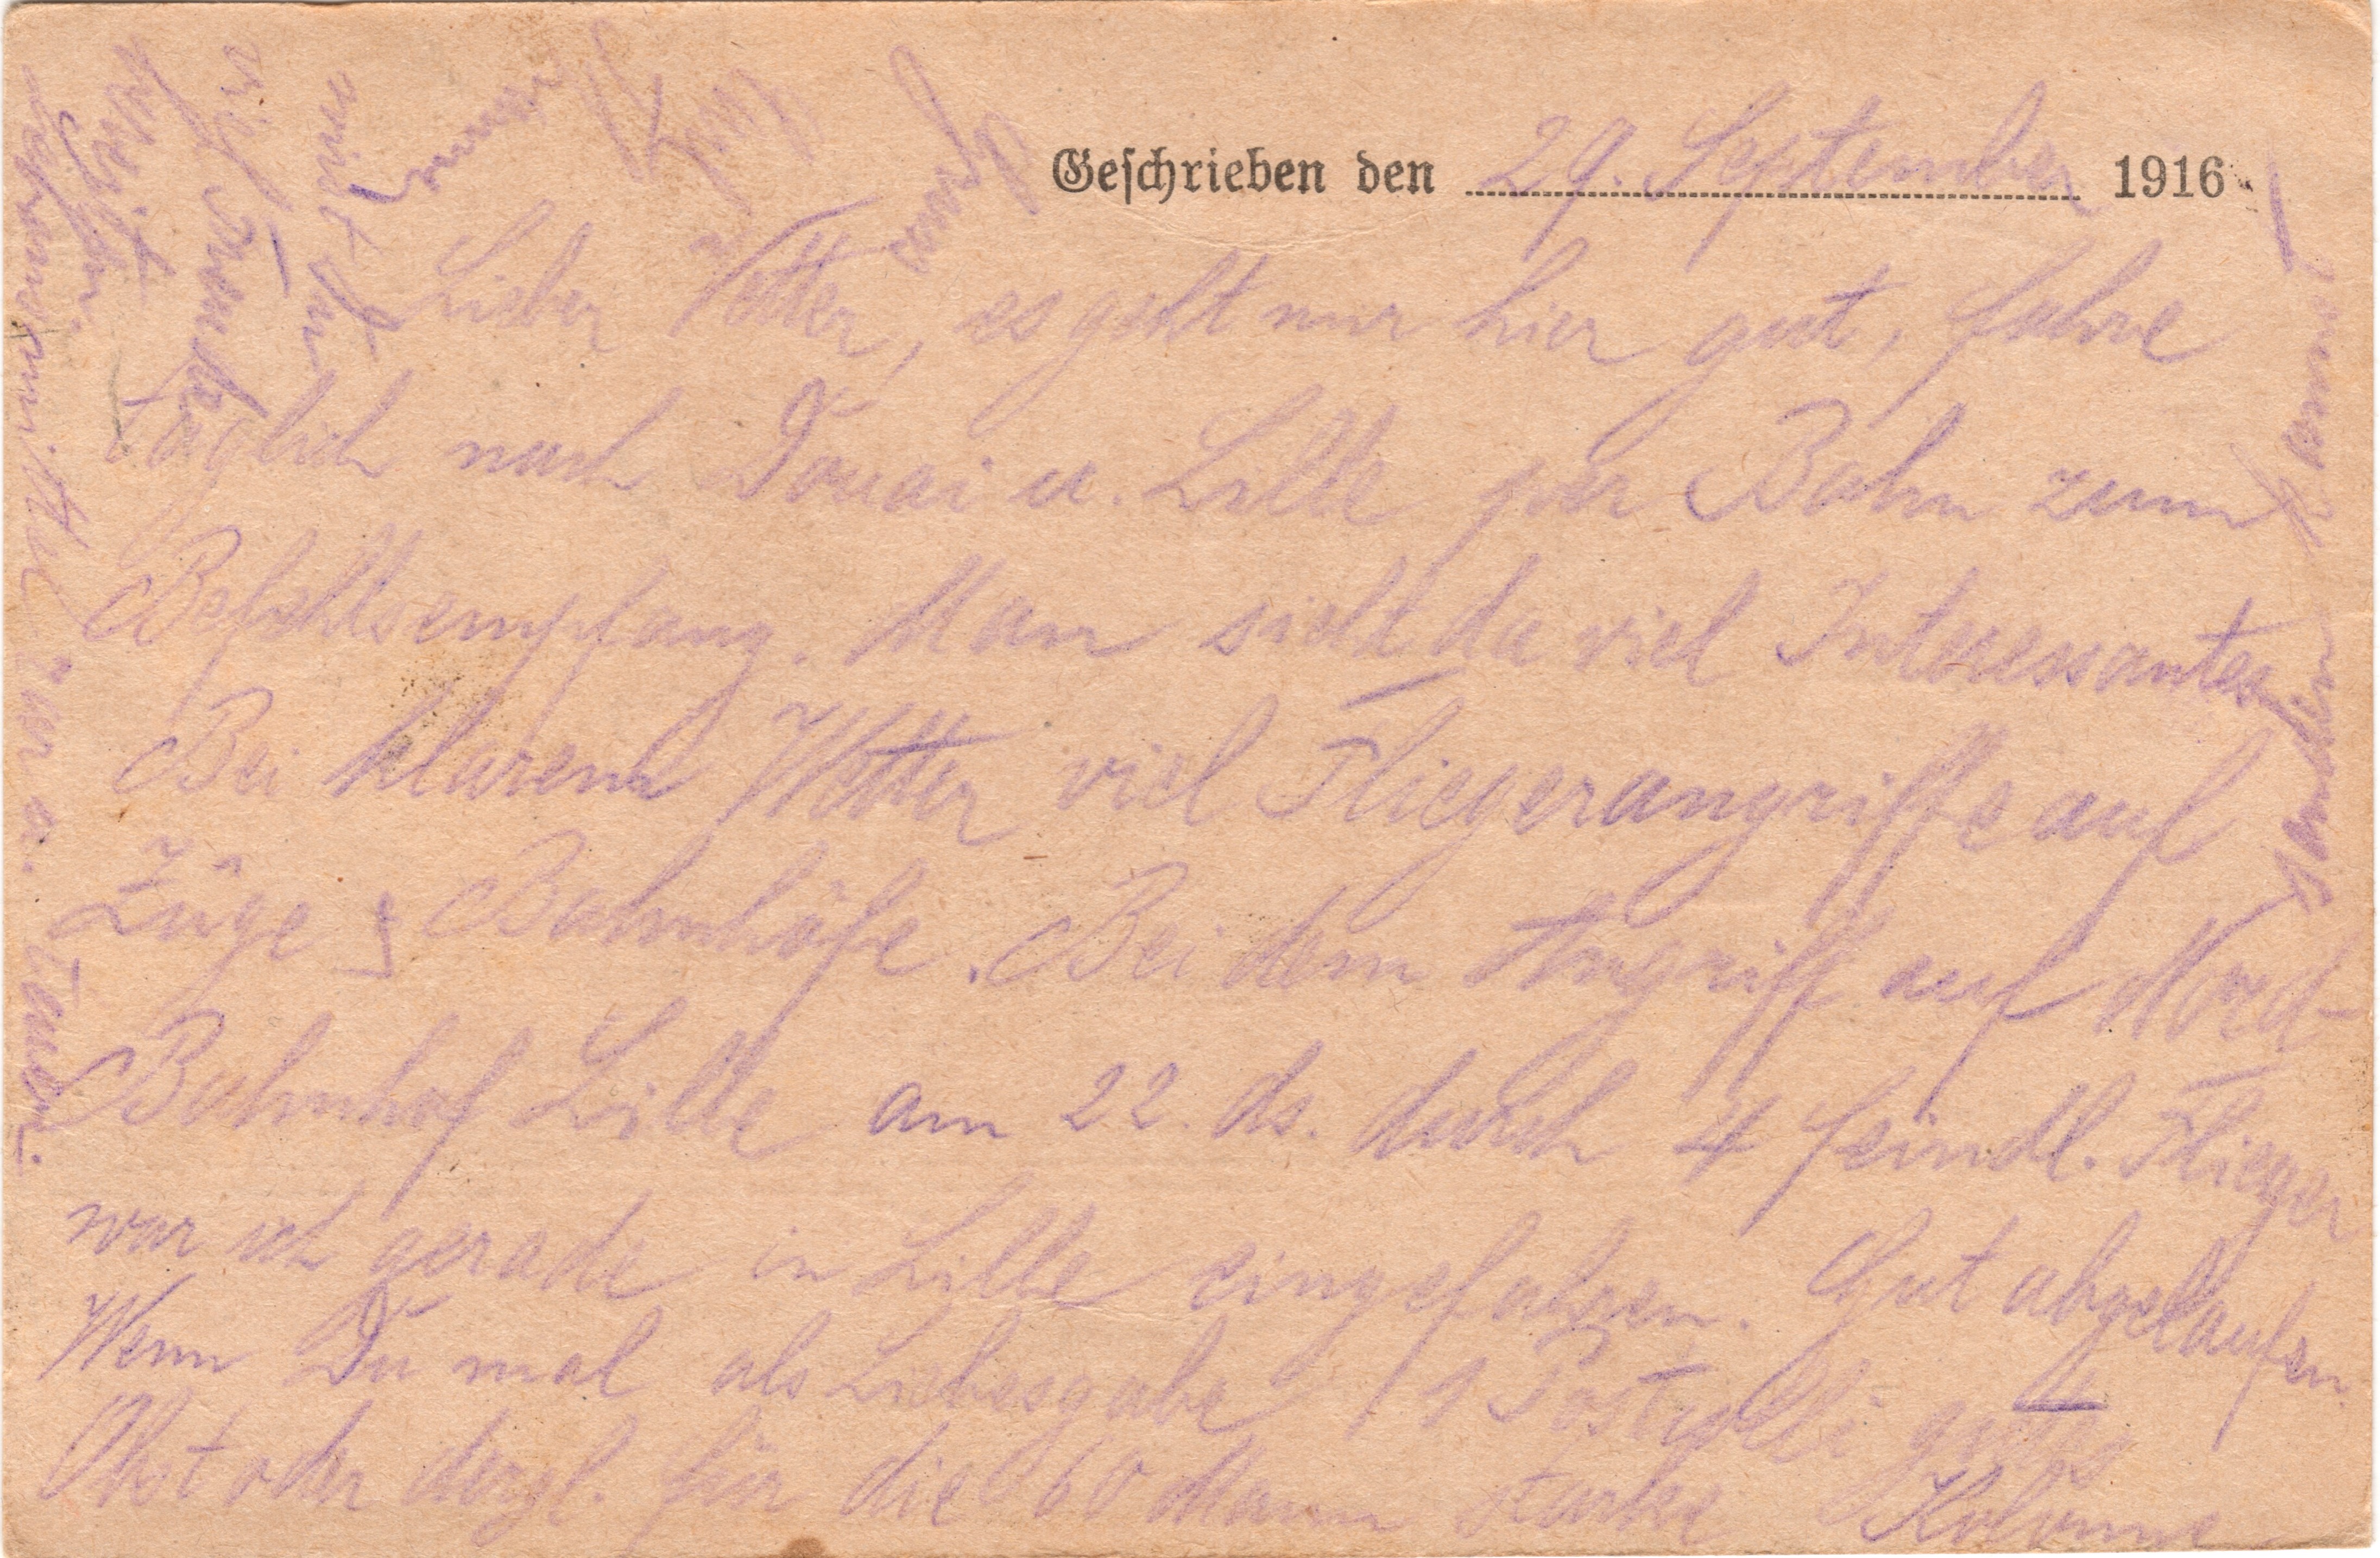 Geschrieben den 29. September 1916
Lieber Vetter, es geht mir hier gut, fahre
täglich nach Douai u. Lille per Bahn zum
Befehlsempfang. Man sieht da viel Interessantes
Bei klarem Wetter viel Fliegerangriffe auf
Züge & Bahnhöfe. Bei dem Angriff auf Nord-
Bahnhof Lille am 22. ds. durch 4 feindl. Flieger
war ich gerade in Lille eingefahren. Gut abgelaufen
Wenn Du mal als Liebesgabe 1 Postkolli gutes
Obst oder dergl. für die 60 Mann starke Kolonne
senden
Lebensmittel u. teuer.